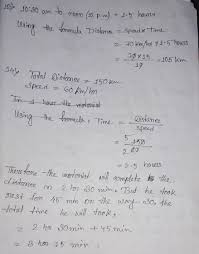 10:30 am to noon (12 p.m) = 1.5 hours
Using the formula Distance = Speed x Time
= 70 km/hr x 1.5 hours
= 70 x 15 / 10 = 105 km
Total Distance = 150 km
Speed = 60 km/hr
In 1 hour the motorist
Using the formula: Time = Distance / Speed
= 5 150 / 2 60
= 2.5 hours
Therefore the motorist will complete the
distance in 2 hr 30 min. But he took
rest for 45 min on the way. So, the
total time he will took,
= 2 hr 30 min + 45 min
= 3 hr 15 min